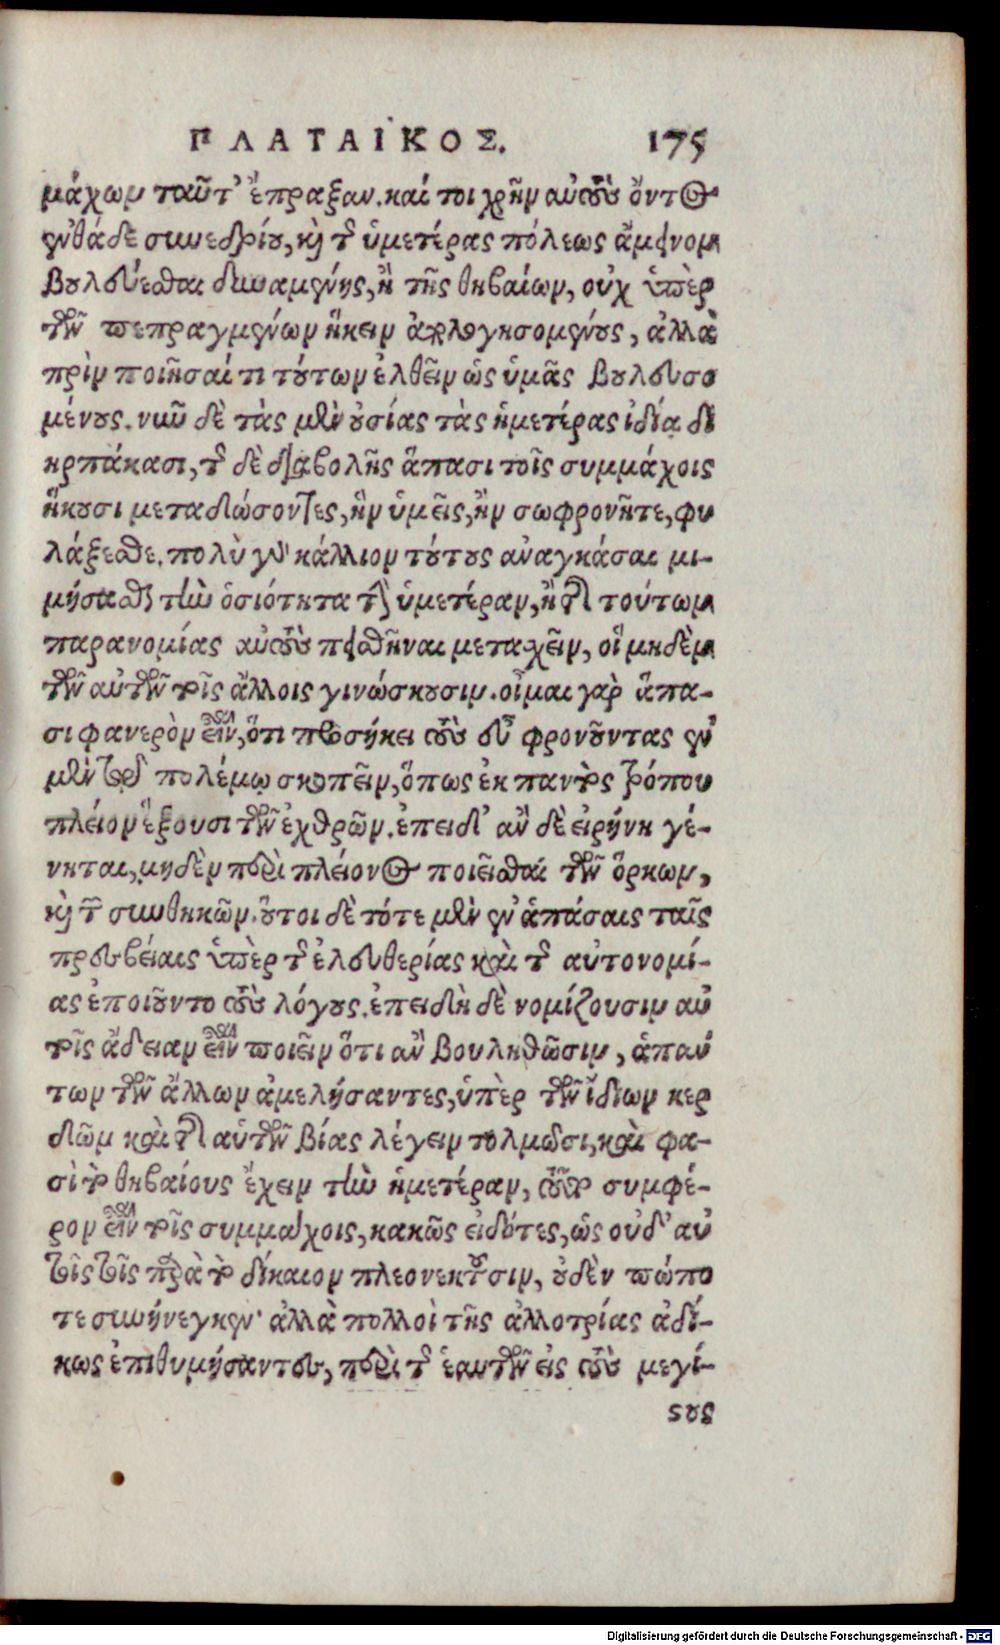 ΠΛΑΤΑΙΚΟΣ. 175
μάχων ταῦτ' ἔπραξαν. καί τοι χρῆν αὐτοὺς ὄντος
ἐνθάδε συνεδρίου, καὶ τῆς ὑμετέρας πόλεως ἄμεινον
βουλεύεσθαι δυναμένης, ἢ τῆς θηβαίων, οὐχ ὑπὲρ
τῶν πεπραγμένων ἥκειν ἀπολογησομένους, ἀλλὰ
πρὶν ποιῆσαί τι τούτων ἐλθεῖν ὡς ὑμᾶς βουλευσο
μένους. νῦν δὲ τὰς μὲν οὐσίας τὰς ἡμετέρας ἰδία δι
ηρπάκασι, τῆς δὲ διαβολῆς ἅπασι τοῖς συμμάχοις
ἥκουσι μεταδώσοντες, ἣν ὑμεῖς, ἢν σωφρονῆτε, φυ
λάξεσθε. πολὺ γὰρ κάλλιον τούτους ἀναγκάσαι μι-
μήσασθαι τὴν ὁσιότητα τὴν ὑμετέραν, ἢ τῆς τούτων
παρανομίας αὐτοὺς πεισθῆναι μετασχεῖν, οἳ μηδὲν
τῶν αὐτῶν τοῖς ἄλλοις γινώσκουσιν. οἶμαι γὰρ ἅπα-
σι φανερὸν εἶναι, ὅτι προσήκει τοὺς εὖ φρονοῦντας ἐν
μὲν τῷ πολέμῳ σκοπεῖν, ὅπως ἐκ παντὸς τρόπου
πλέιον ἕξουσι τῶν ἐχθρῶν. ἐπειδ' ἂν δὲ εἰρήνη γέ-
νηται, μηδὲν περὶ πλείονος ποιεῖσθαί τῶν ὅρκων,
καὶ τῶν συνθηκῶν. οὗτοι δὲ τότε μὲν ἐν ἁπάσαις ταῖς
πρεσβείαις ὑπὲρ τῆς ἐλευθερίας καὶ τῆς αὐτονομί-
ας ἐποιοῦντο τοὺς λόγους. ἐπειδὴ δὲ νομίζουσιν αὑ
τοῖς ἄδειαν εἶναι ποιεῖν ὅτι ἂν βουληθῶσιν, ἁπάν
των τῶν ἄλλων ἀμελήσαντες, ὑπὲρ τῶν ἰδίων κερ
δῶν καὶ τῆς αὑτῶν βίας λέγειν τολμῶσι, καὶ φα-
σὶ τὸ θηβαίους ἔχειν τὴν ἡμετέραν, τοῦτο συμφέ-
ρον εἶναι τοῖς συμμάχοις, κακῶς εἰδότες, ὡς οὐδ' αὐ
τοῖς τοῖς παρὰ τὸ δίκαιον πλεονεκτοῦσιν, οὐδὲν πώπο
τε συνήνεγκεν· ἀλλὰ πολλοὶ τῆς ἀλλοτρίας ἀδί-
κως ἐπιθυμήσαντες, περὶ τῆς ἑαυτῶν εἰς τοὺς μεγί-
στους
Digitalisierung gefördert durch die Deutsche Forschungsgemeinschaft - DFG